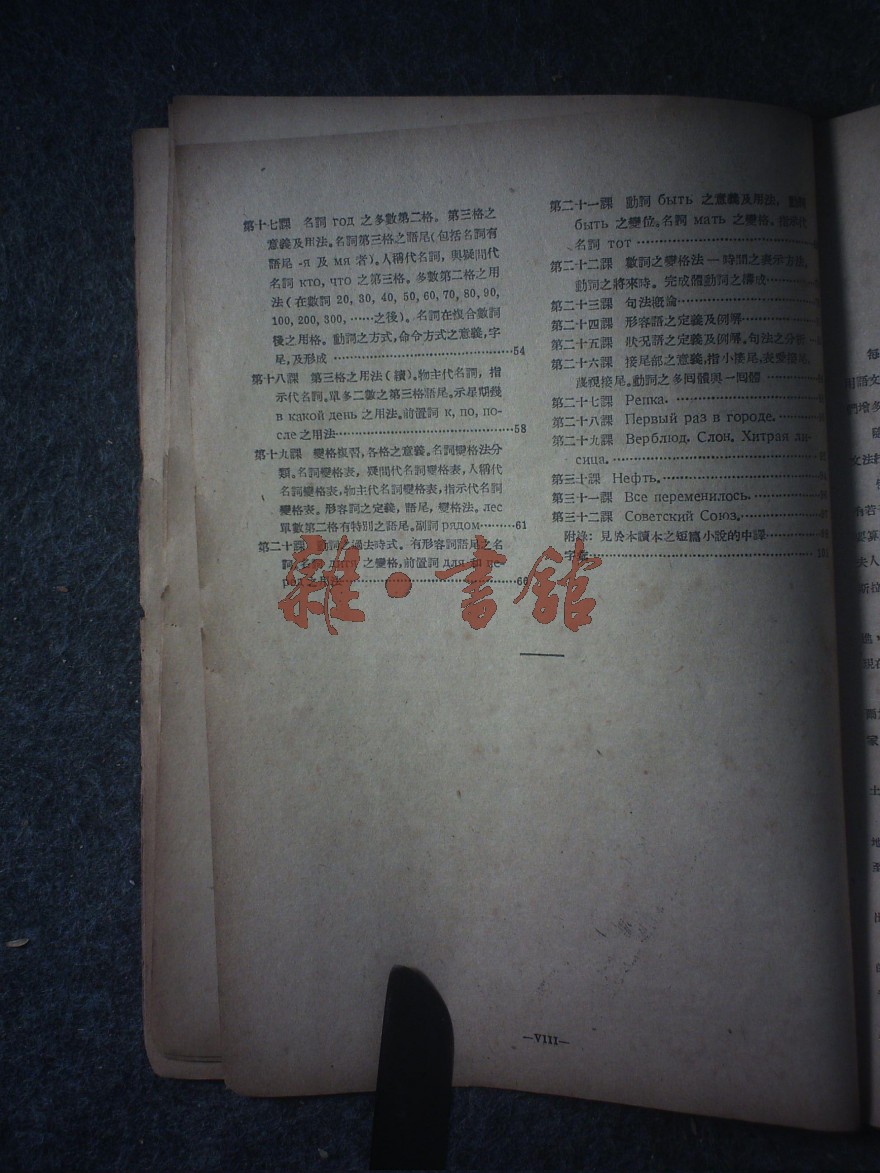 第十七課 名詞 год 之多數第二格。第三格之
意義及用法。名詞第三格之語尾(包括名詞有
語尾 -я 及 мя 者)。人稱代名詞,與疑問代
名詞 кто, что 之第三格。多數第二格之用
法(在數詞 20, 30, 40, 50, 60, 70, 80, 90,
100, 200, 300, ……之後)。名詞在復合數詞
後之用格。動詞之方式,命令方式之意義,字
尾,及形成 ……54
第十八課 第三格之用法(續)。物主代名詞,指
示代名詞。單多二數之第三格語尾。示星期幾
в какой день 之用法。前置詞 к, по, по-
сле 之用法……58
第十九課 變格複習,各格之意義。名詞變格法分
類。名詞變格表,疑問代名詞變格表,人稱代
名詞變格表,物主代名詞變格表,指示代名詞
變格表。形容詞之定義,語尾,變格法。лес
單數第二格有特別之語尾。副詞 рядом……61
第二十課 動詞之過去時式。有形容詞語尾之名
詞,名詞 дитя 之變格,前置詞 для 和 пе-
ред 之用法……66
第二十一課 動詞 быть 之意義及用法,
быть 之變位。名詞 мать 之變格,指示代
名詞 тот ……
第二十二課 數詞之變格法—時間之表示方法,
動詞之將來時。完成體動詞之構成……
第二十三課 句法概論……
第二十四課 形容語之定義及例解……
第二十五課 狀況語之定義及例解。句法之分析
第二十六課 接尾部之意義,指小接尾,表愛接尾,
蔑視接尾。動詞之多囘體與一囘體 ……
第二十七課 Репка. ……
第二十八課 Первый раз в городе. ……
第二十九課 Верблюд. Слон. Хитрая ли-
сица. ……
第三十課 Нефть. ……
第三十一課 Все переменилось. ……
第三十二課 Советский Союз. ……
附錄: 見於本讀本之短篇小說的中譯……
字彙……
雜・書館
—VIII—